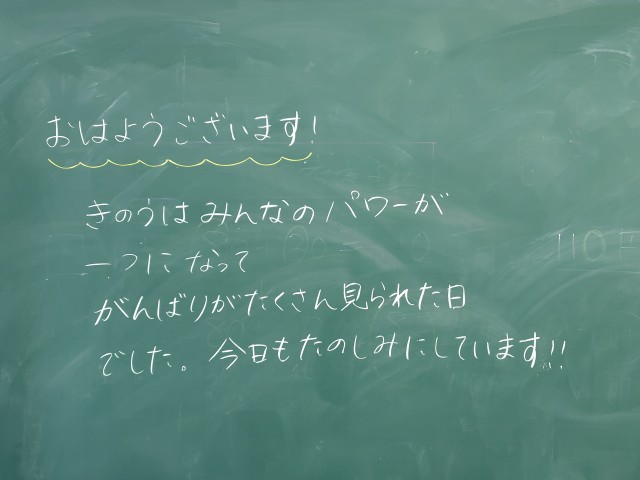 おはようございます!
きのうはみんなのパワーが
一つになって
がんばりがたくさん見られた日
でした。今日もたのしみにしています!!
110円